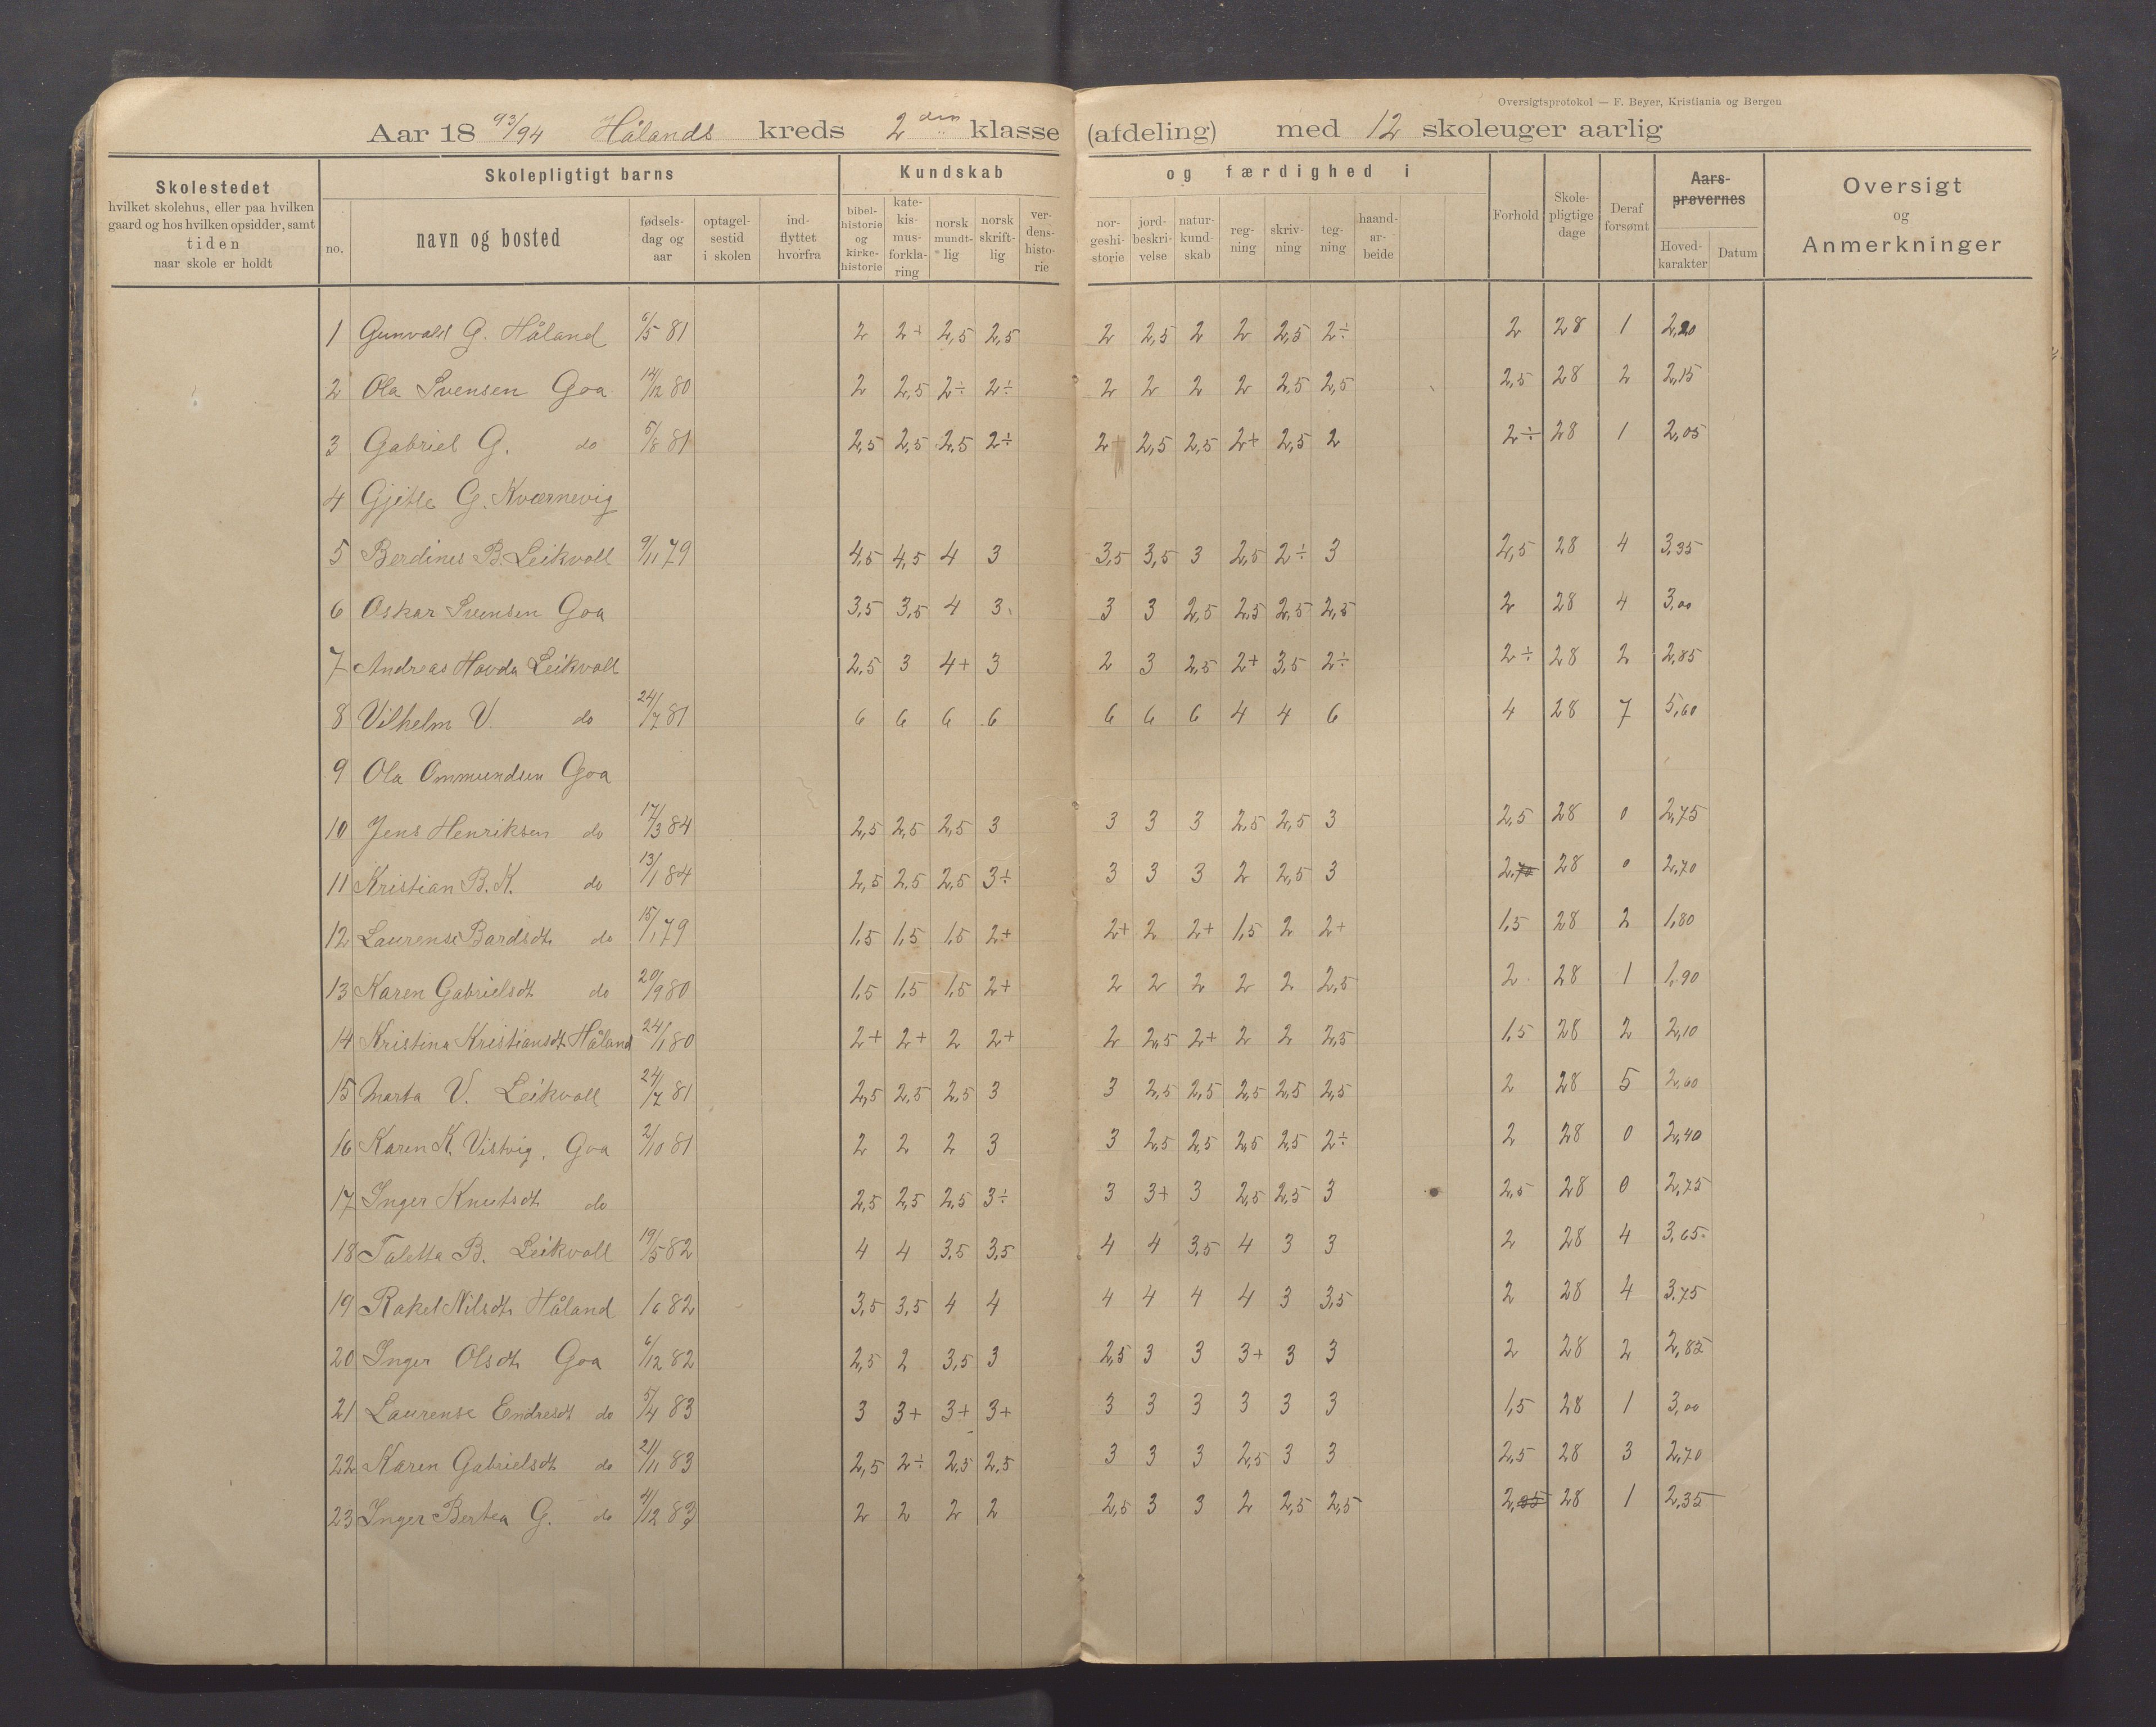 Oversigtsprotokol — F. Beyer, Kristiania og Bergen
Aar 18 93/94 Hålands kreds 2den klasse (afdeling) med 12 skoleuger aarlig
Skolestedet
hvilket skolehus, eller paa hvilken
gaard og hos hvilken opsidder, samt
tiden
naar skole er holdt
Skolepligtigt barns
no.
navn og bosted
fødsels-
dag og
aar
optagel-
sestid
i skolen
ind-
flyttet
hvorfra
Kundskab og færdighed i
bibel-
historie
og
kirke-
historie
kate-
kis-
mus-
forkla-
ring
norsk
mundt-
lig
norsk
skrift-
lig
ver-
dens-
histo-
rie
nor-
geshi-
storie
jord-
beskri-
velse
natur-
kund-
skab
reg-
ning
skriv-
ning
teg-
ning
haand-
ar-
beide
Forhold
Skole-
pligtige
dage
Deraf
forsømt
Aars-
prøvernes
Hoved-
karakter
Datum
Oversigt
og
Anmerkninger
1 Gunvald G. Håland 6/5 81 2 2+ 2,5 2,5 2 2,5 2 2 2,5 2÷ 2 28 1 2,20
2 Ola Svensen Goa 14/12 80 2 2,5 2÷ 2÷ 2 2 2 2 2,5 2,5 2,5 28 2 2,15
3 Gabriel G. do 5/8 81 2,5 2,5 2,5 2÷ 2 2,5 2,5 2+ 2,5 2 2÷ 28 1 2,05
4 Gjitle G. Kværnevig
5 Berdines B. Leikvoll 9/11 79 4,5 4,5 4 3 3,5 3,5 3 2,5 2÷ 3 2,5 28 4 3,35
6 Oskar Svensen Goa 3,5 3,5 4 3 3 3 2,5 2,5 2,5 2,5 2 28 4 3,00
7 Andreas Hovda Leikvoll 2,5 3 4+ 3 2 3 2,5 2+ 3,5 2÷ 2÷ 28 2 2,85
8 Vilhelm V. do 24/7 81 6 6 6 6 6 6 6 4 4 6 4 28 7 5,60
9 Ola Ommundsen Goa
10 Jens Henriksen do 17/3 84 2,5 2,5 2,5 3 3 3 3 2,5 2,5 3 2,5 28 0 2,75
11 Kristian B. K. do 13/1 84 2,5 2,5 2,5 3÷ 3 3 3 2 2,5 3 2,70 28 0 2,70
12 Laurense Bardsdt. do 15/1 79 1,5 1,5 1,5 2+ 2+ 2 2+ 1,5 2 2+ 1,5 28 2 1,80
13 Karen Gabrielsdt. do 20/9 80 1,5 1,5 1,5 2+ 2 2 2 2 2 2,5 2 28 1 1,90
14 Kristina Kristiansdt. Håland 24/1 80 2+ 2+ 2 2+ 2 2,5 2+ 2 2 2,5 1,5 28 2 2,10
15 Marta V. Leikvoll 24/7 81 2,5 2,5 2,5 3 3 2,5 2,5 2,5 2,5 2,5 2 28 5 2,60
16 Karen K. Vistvig. Goa 2/10 81 2 2 2 3 3 2,5 2,5 2,5 2,5 2÷ 2 28 0 2,40
17 Inger Knutsdt. do 2,5 2,5 2,5 3÷ 3 3+ 3 2,5 2,5 3 2,5 28 0 2,75
18 Taletta B. Leikvoll 19/5 82 4 4 3,5 3,5 4 4 3,5 4 3 3 2 28 4 3,65
19 Rakel Nilsdt. Håland 16 82 3,5 3,5 4 4 4 4 4 4 3 3,5 2 28 4 3,75
20 Inger Olsdt. Goa 6/12 82 2,5 2 3,5 3 2,5 3 3 3+ 3 3 2 28 2 2,85
21 Laurense Endresdt. do 5/4 83 3 3+ 3+ 3+ 3 3 3 3 3 3 1,5 28 1 3,00
22 Karen Gabrielsdt. do 21/11 83 2,5 2÷ 2,5 2,5 3 3 3 2,5 3 3 2,5 28 3 2,70
23 Inger Bertea G. do 4/12 83 2 2 2 2 2,5 3 3 2 2,5 2,5 2,35 28 1 2,35